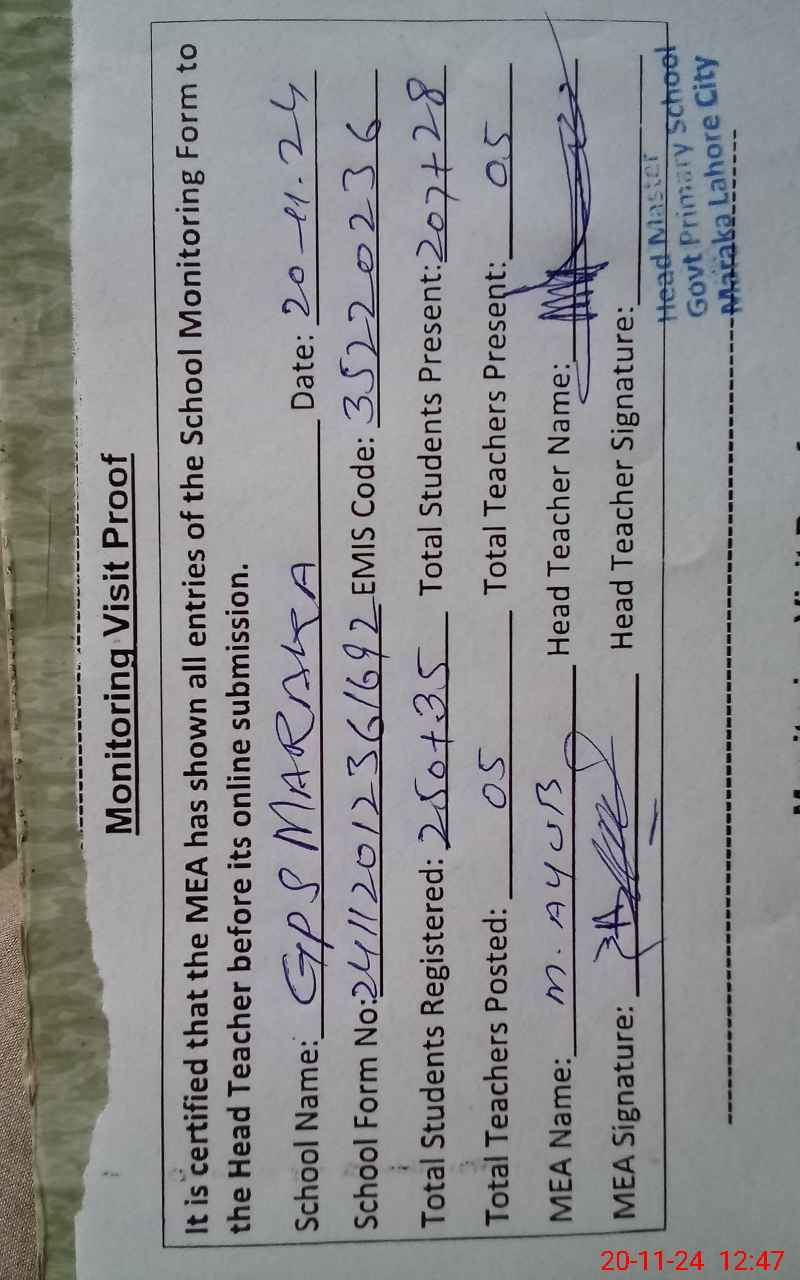 Monitoring Visit Proof
It is certified that the MEA has shown all entries of the School Monitoring Form to
the Head Teacher before its online submission.
School Name: GPS MARAKA Date: 20-11.24
School Form No: 24112012361692 EMIS Code: 35220236
Total Students Registered: 250+35 Total Students Present: 207+28
Total Teachers Posted: 05 Total Teachers Present: 05
MEA Name: M. AYUB Head Teacher Name:
MEA Signature: Head Teacher Signature:
Head Master
Govt Primary School
Maraka Lahore City
20-11-24 12:47